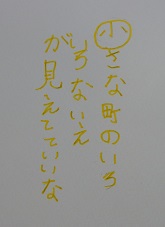 小さな町のいろ
いろないえ
が見えてていいな